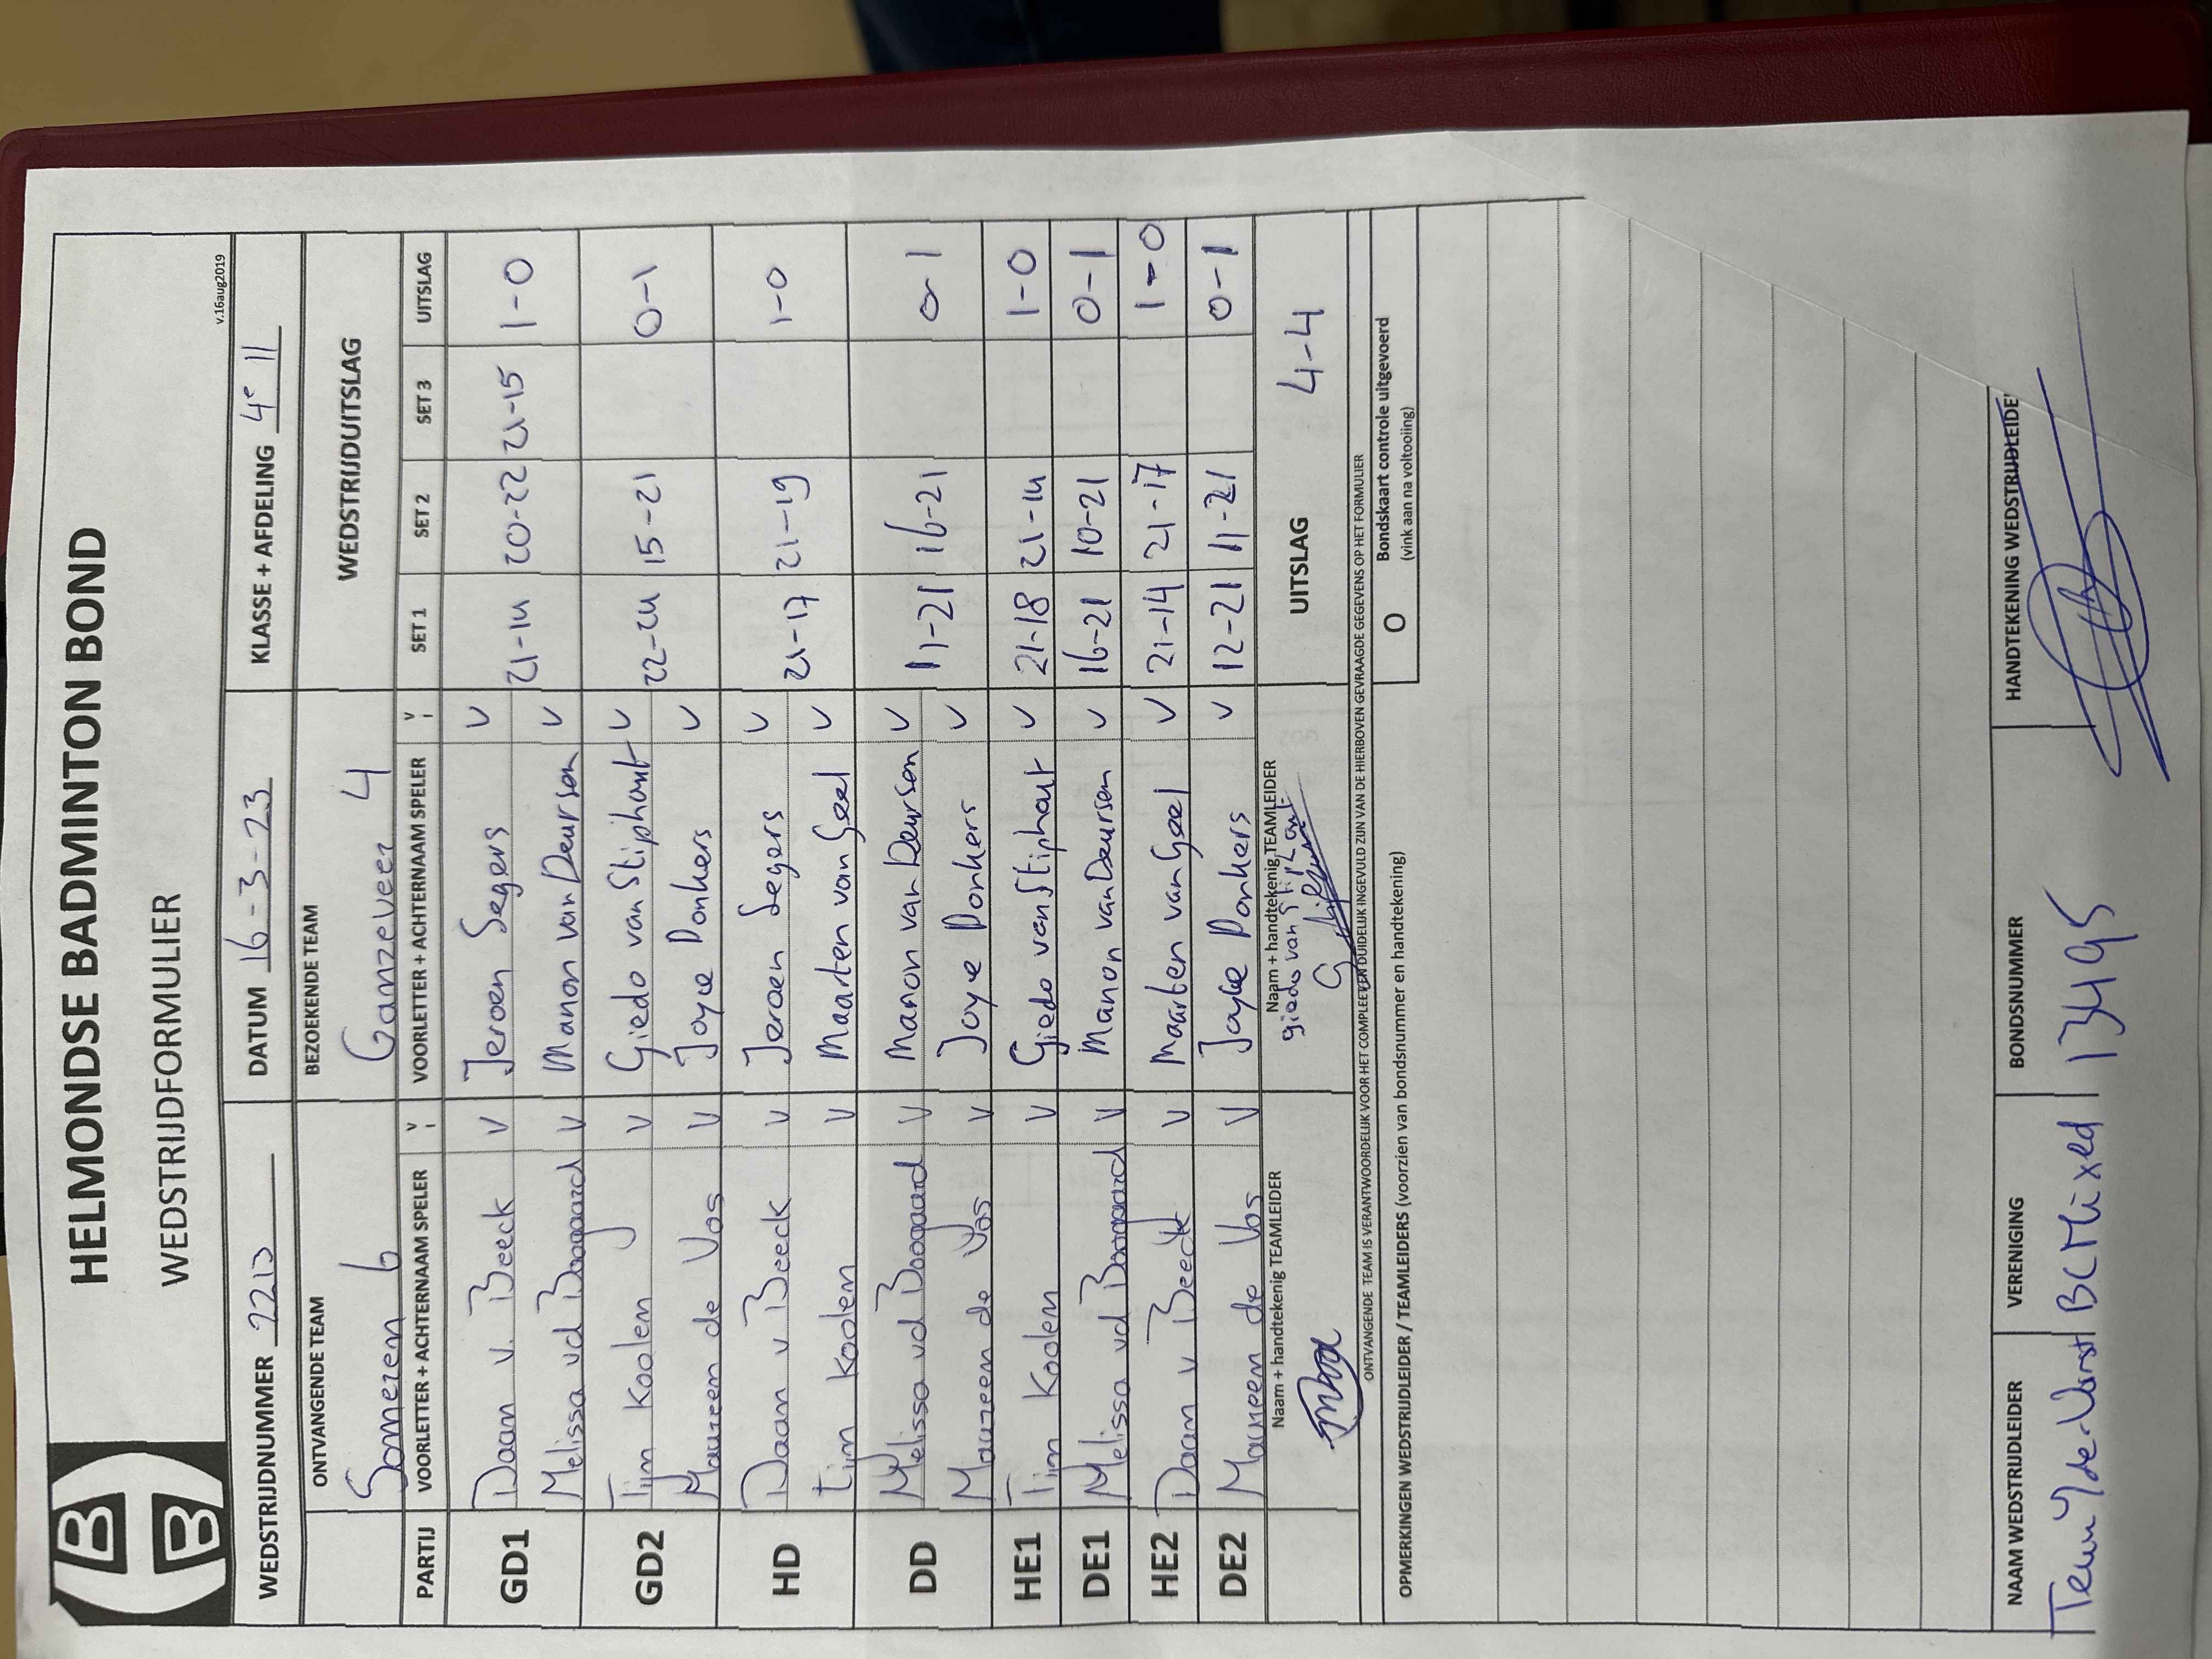 HELMONDSE BADMINTON BOND
WEDSTRIJDFORMULIER
v.16aug2019
WEDSTRIJDNUMMER 2213 DATUM 16-3-23 KLASSE + AFDELING 4e 11
ONTVANGENDE TEAM BEZOEKENDE TEAM WEDSTRIJDUITSLAG
Someren 6 Ganzeveer 4
PARTIJ VOORLETTER + ACHTERNAAM SPELER V VOORLETTER + ACHTERNAAM SPELER V SET 1 SET 2 SET 3 UITSLAG
GD1 Daan v. Beeck V Jeroen Segers V 21-14 20-22 21-15 1-0
Melissa vd Boogaard V Manon van Deursen V
GD2 Tim Koolen V Giedo van Stiphout V 22-24 15-21 0-1
Maureen de Vos V Joyce Donkers V
HD Daan v Beeck V Jeroen Segers V 21-17 21-19 1-0
tim koolen V Maarten van Geel V
DD Melissa vd Boogaard V Manon van Deursen V 11-21 16-21 0-1
Maureen de Vos V Joyce Donkers V
HE1 Tim Koolen V Giedo van Stiphout V 21-18 21-14 1-0
DE1 Melissa vd Boogaard V Manon van Deursen V 16-21 10-21 0-1
HE2 Daan v Beeck V Maarten van Geel V 21-14 21-17 1-0
DE2 Maureen de Vos V Joyce Donkers V 12-21 11-21 0-1
Naam + handtekenig TEAMLEIDER Naam + handtekenig TEAMLEIDER UITSLAG 4-4
giedo van Stiphout
ONTVANGENDE TEAM IS VERANTWOORDELIJK VOOR HET COMPLEET EN DUIDELIJK INGEVULD ZIJN VAN DE HIERBOVEN GEVRAAGDE GEGEVENS OP HET FORMULIER
OPMERKINGEN WEDSTRIJDLEIDER / TEAMLEIDERS (voorzien van bondsnummer en handtekening) O Bondskaart controle uitgevoerd
(vink aan na voltooiing)
NAAM WEDSTRIJDLEIDER VERENIGING BONDSNUMMER HANDTEKENING WEDSTRIJDLEIDER
BC Mixed 13495